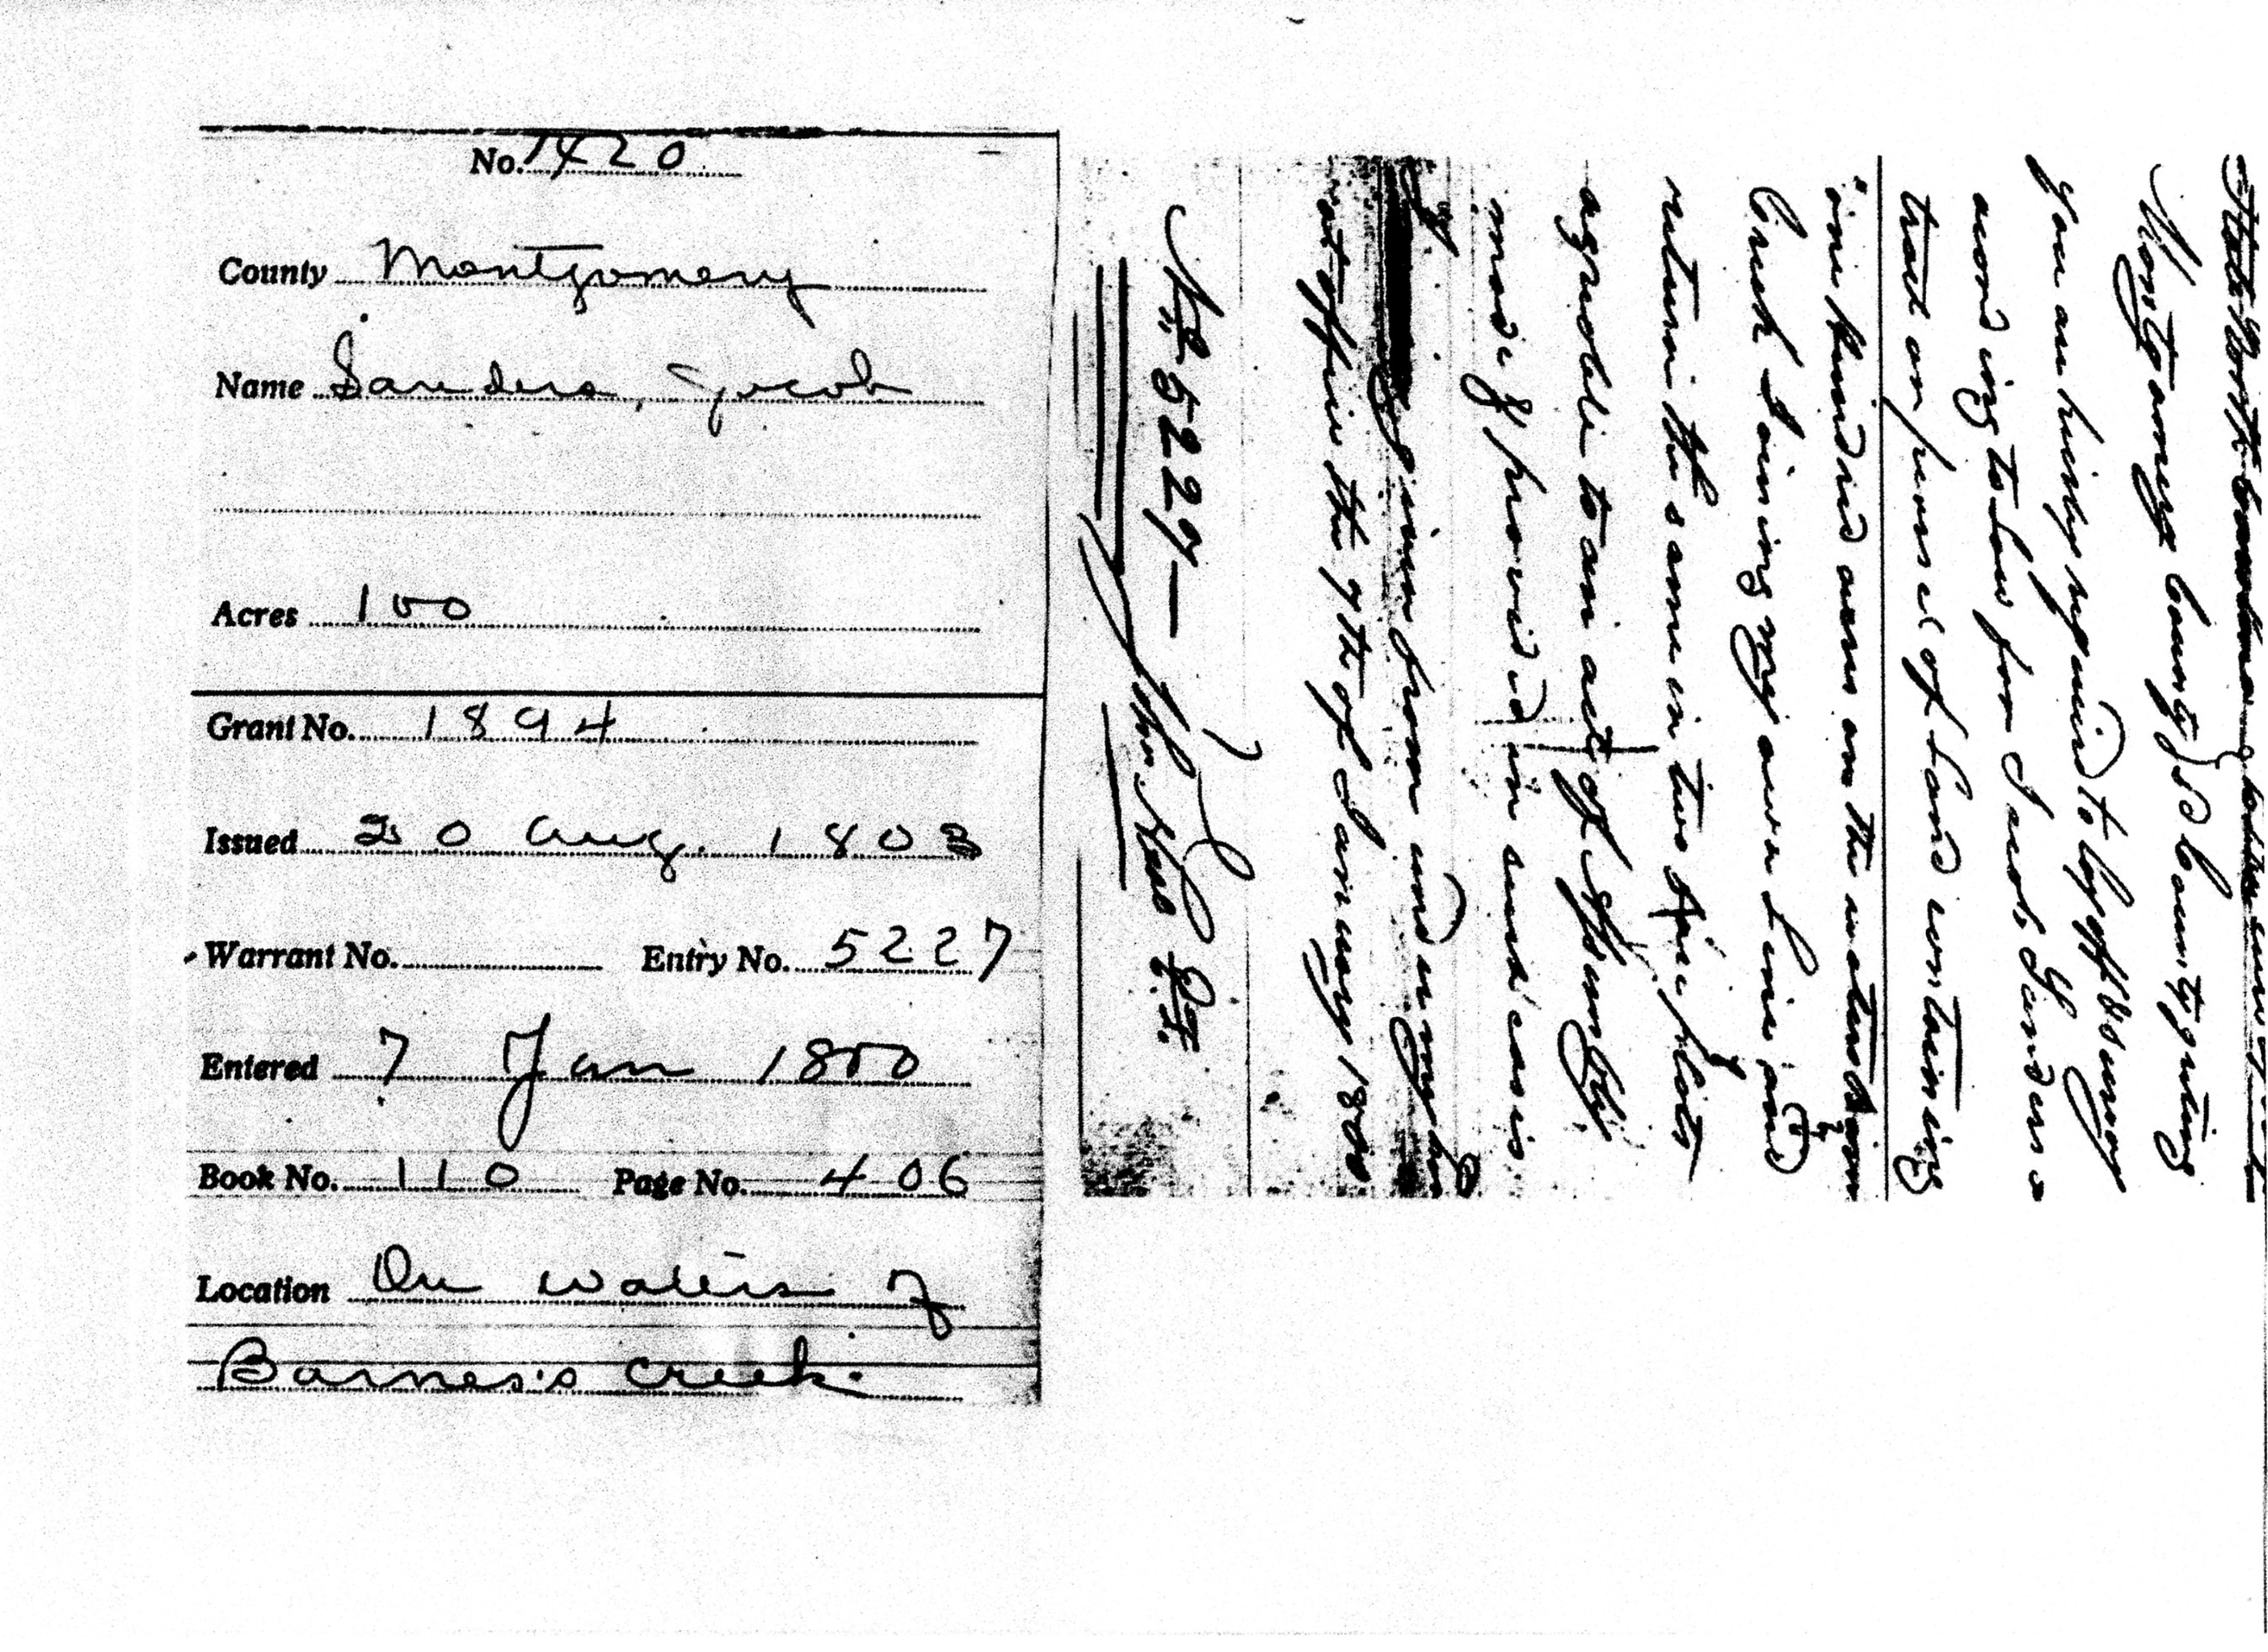 No. 1420
County Montgomery
Name Sanders, Jacob
Acres 100
Grant No. 1894
Issued 20 Aug. 1803
Warrant No. Entry No. 5227
Entered 7 Jan 1800
Book No. 110 Page No. 406
Location On waters of
Barnes's Creek.
State North Carolina
Montgomery County } S C County
you are hereby required to lay off & survey
according to Law for Jacob Sanders a
tract or parcel of Land containing
one hundred acres on the waters
Creek Joining my own Line and
return the same in two plots
agreable to an act of Assembly
made & provided in such cases
given from under my han
at office the 7th of January 1800
No 5227—